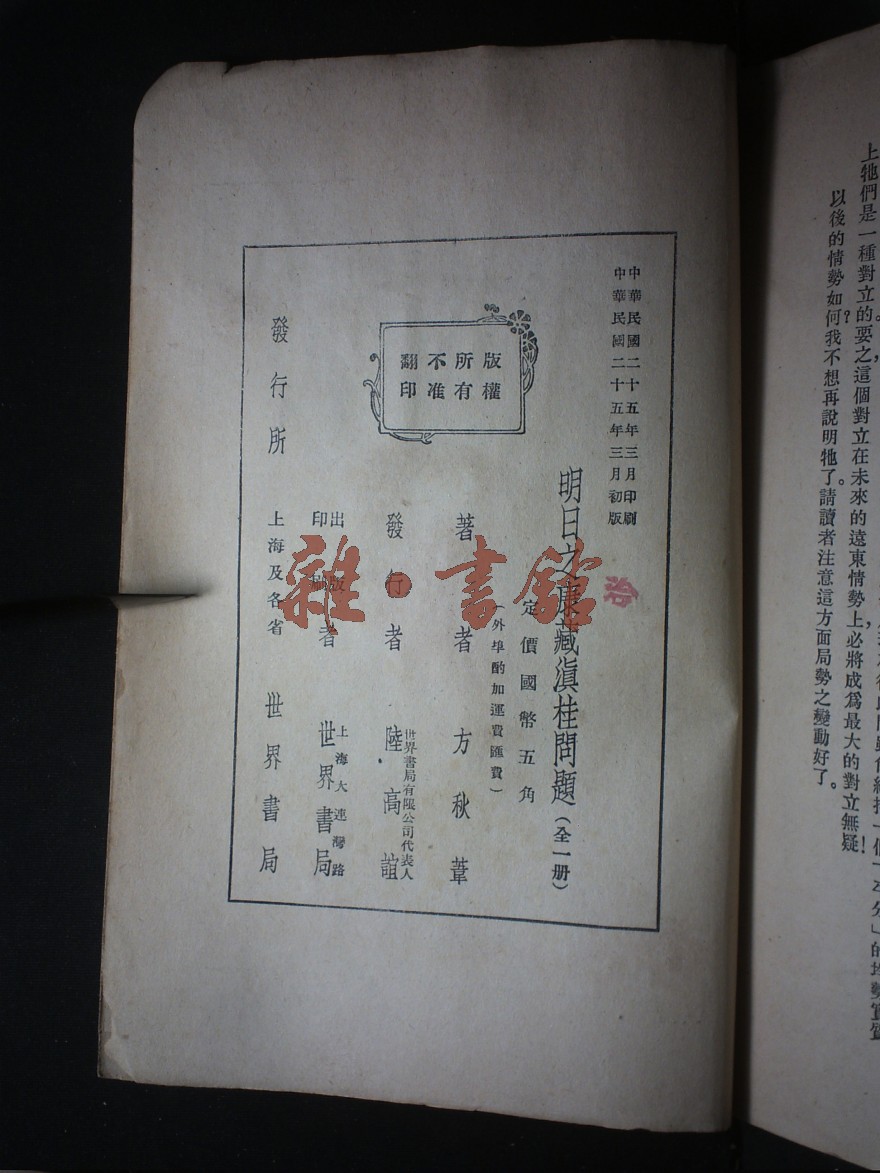 上牠們是一種對立的。要之,這個對立在未來的遠東情勢上必將成爲最大的對立無疑!
以後的情勢如何?我不想再說明牠了。請讀者注意這方面局勢之變動好了。
中華民國二十五年三月印刷
中華民國二十五年三月初版
明日之康藏滇桂問題(全一册)
定價國幣五角
(外埠酌加運費匯費)
版權
所有
不准
翻印
著者 方秋葦
發行者 世界書局有限公司代表人 陸高誼
出版
印刷者 上海大連灣路 世界書局
發行所 上海及各省 世界書局
雜·書館